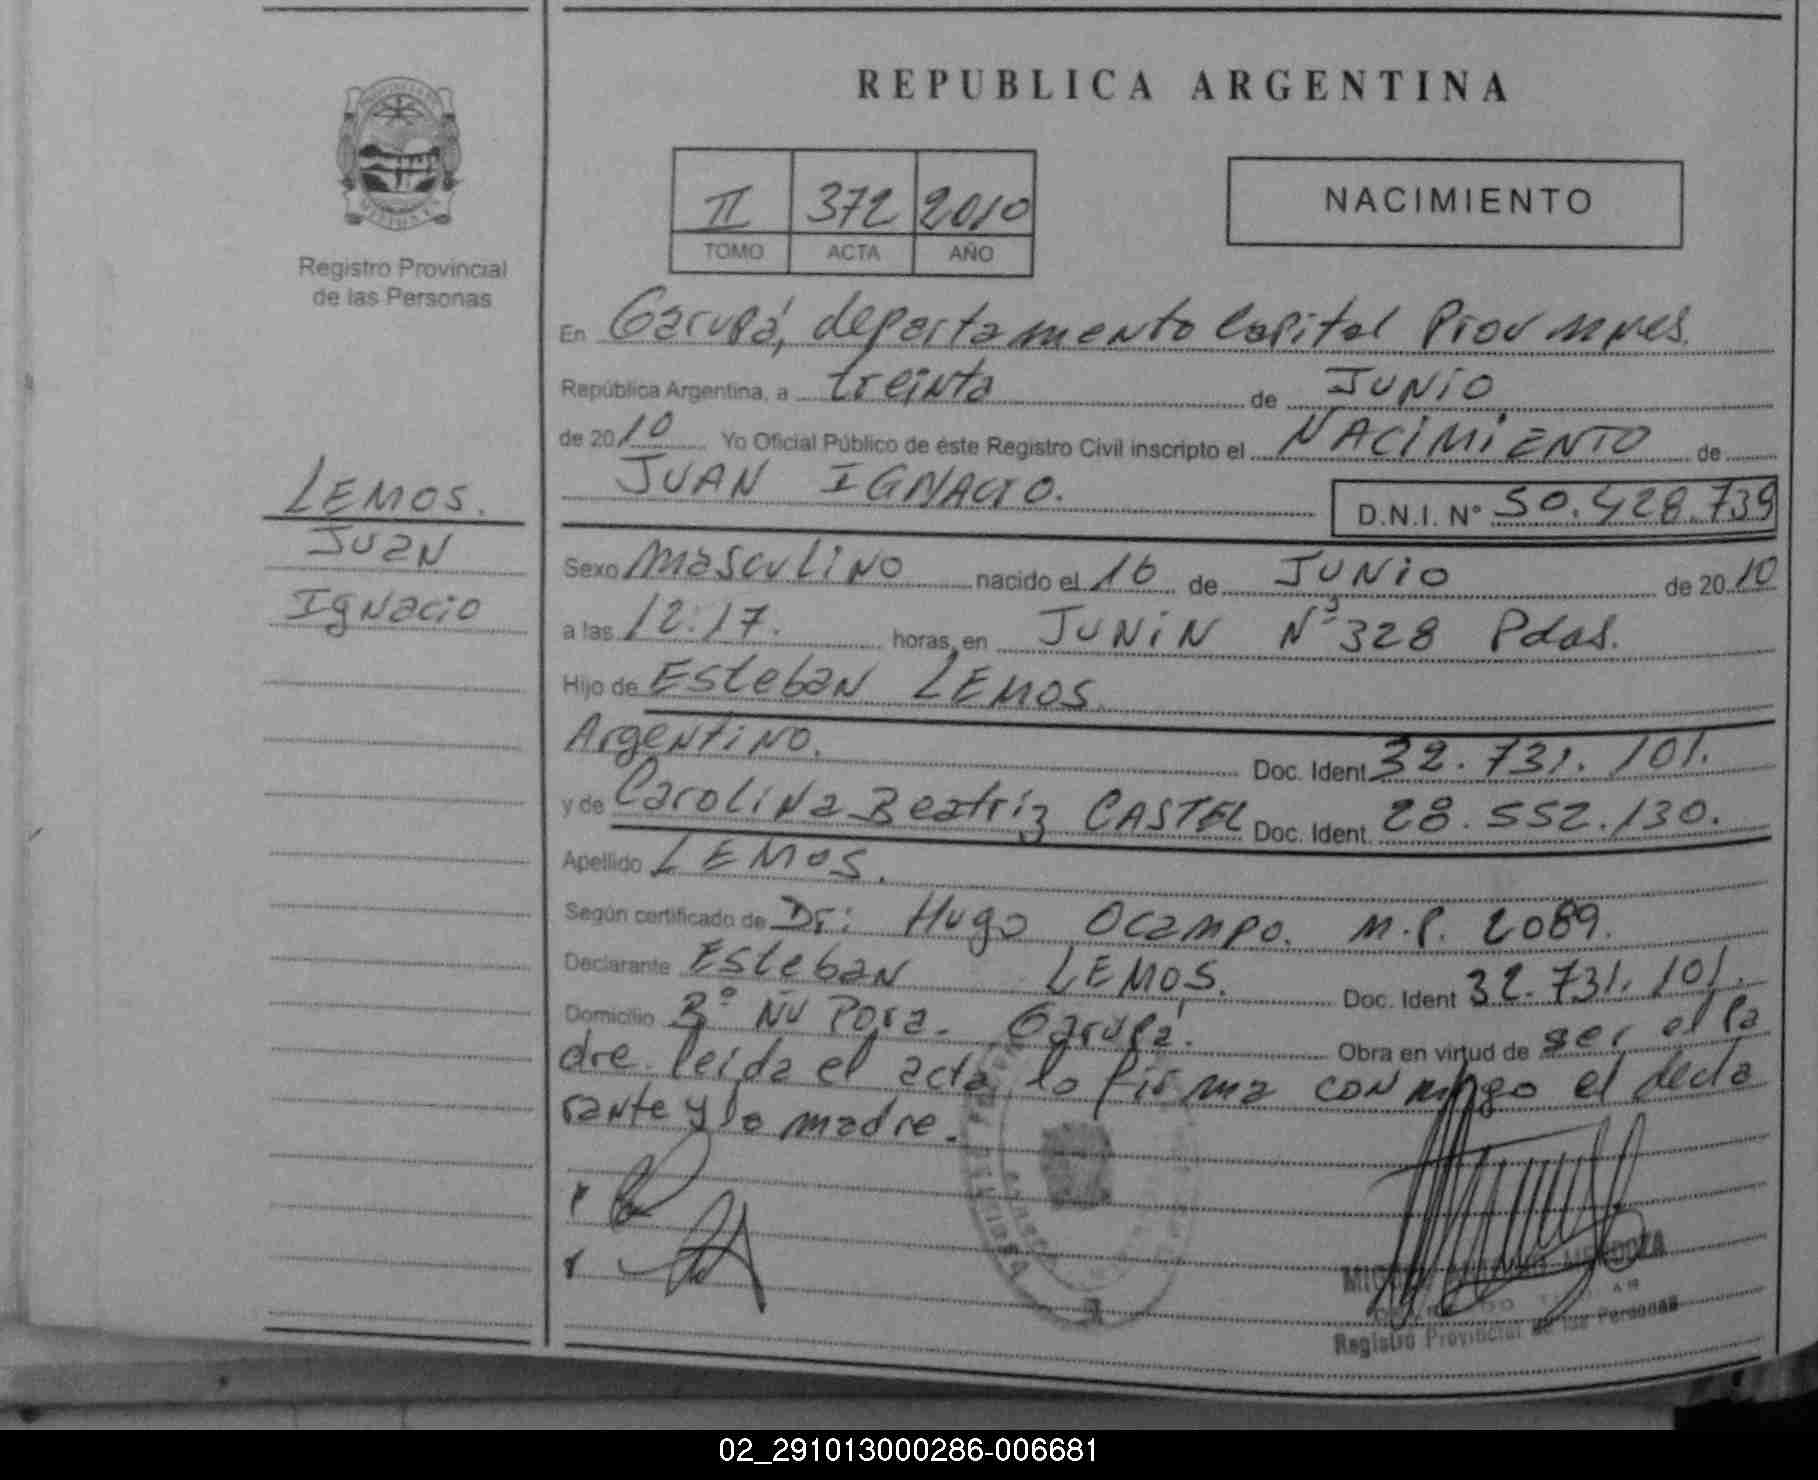 REPUBLICA ARGENTINA
Registro Provincial
de las Personas
II 372 2010
TOMO ACTA AÑO
NACIMIENTO
LEMOS.
Juan
Ignacio
En Garupá, departamento Capital Prov
República Argentina, a treinta de JUNIO
de 2010 Yo Oficial Público de éste Registro Civil inscripto el NACIMIENTO de
JUAN IGNACIO. D.N.I. N° 50.428.739
Sexo masculino nacido el 16 de JUNIO de 2010
a las 12:17. horas, en JUNIN N° 328 Pdas.
Hijo de Esteban LEMOS.
Argentino. Doc. Ident. 32.731.101.
y de Carolina Beatriz CASTEL Doc. Ident. 28.552.130.
Apellido LEMOS.
Según certificado de Dr: Hugo Ocampo. M.P. 2089.
Declarante Esteban LEMOS. Doc. Ident 32.731.101.
Domicilio B° ÑU Pora. Garupá. Obra en virtud de ser el pa
dre. leida el acta, la firma conmigo el decla
rante y la madre.
MENDOZA
Registro Provincial de las Personas
02_291013000286-006681